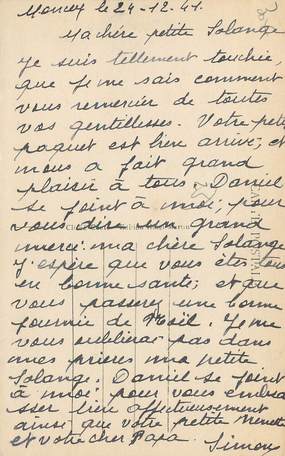 Moncey le 24-12-41
Ma chère petite Solange
Je suis tellement touchée,
que je ne sais comment
vous remercier de toutes
vos gentillesses. Votre petit
paquet est bien arrivé; et
nous a fait grand
plaisir à tous. Daniel
se joint à moi; pour
vous dire un grand
merci ma chère Solange
J'espère que vous êtes tous
en bonne santé; et que
vous passerez une bonne
journée de Noël. Je ne
vous oublierai pas dans
mes prières ma petite
Solange. Daniel se joint
à moi pour vous embra
sser bien affectueusement
ainsi que votre petite
et votre cher Papa. Simone